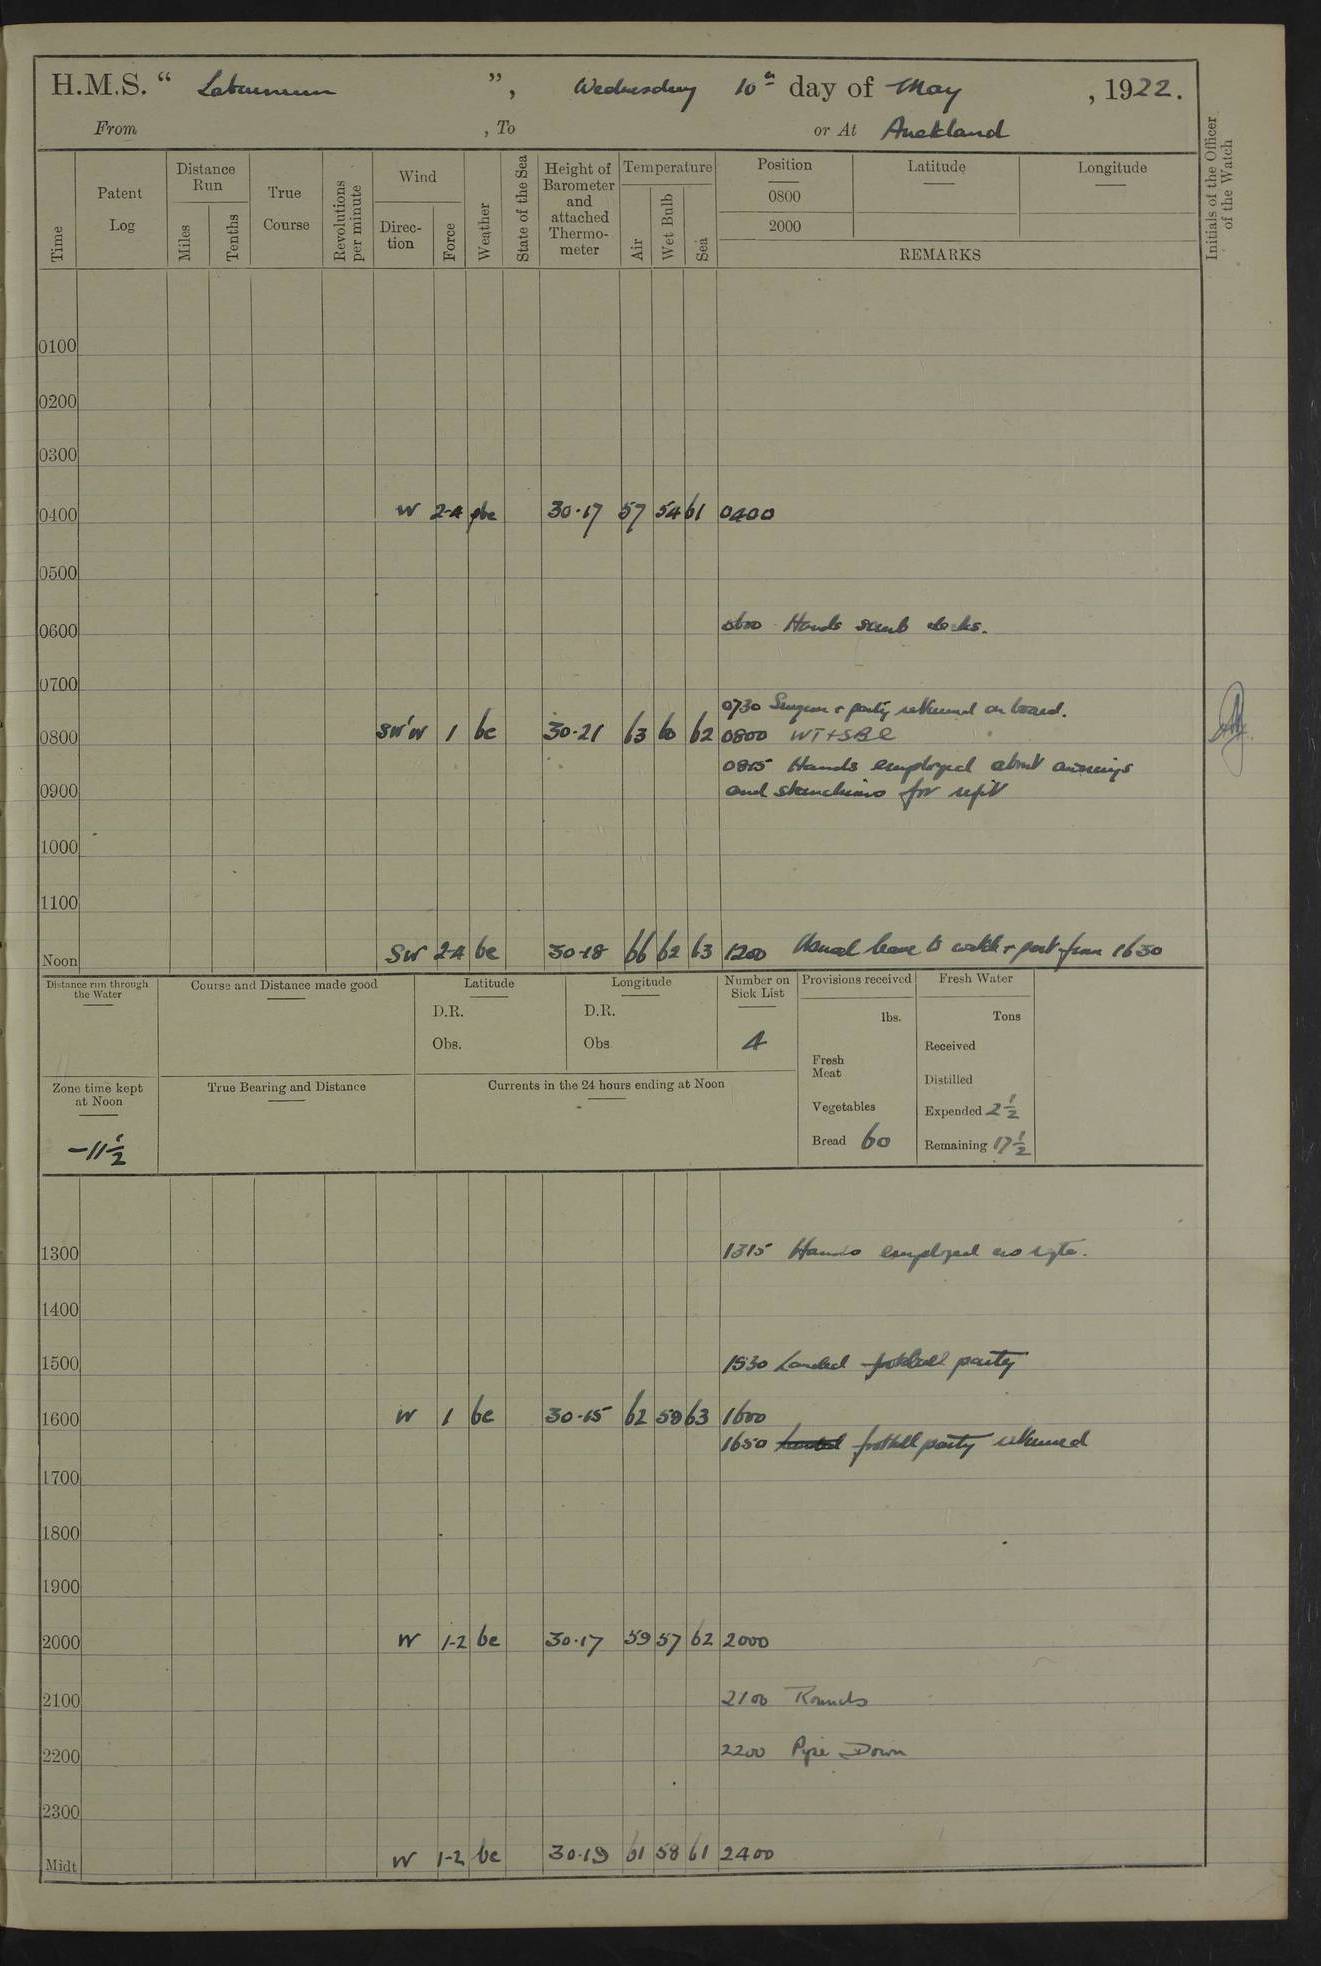 H.M.S. “ Laburnum ”, Wednesday 10th day of May , 1922.
From , To or At Auckland
Time
Patent Log
Distance Run
Miles
Tenths
True Course
Revolutions per minute
Wind
Direction
Force
Weather
State of the Sea
Height of Barometer and attached Thermometer
Temperature
Air
Wet Bulb
Sea
Position
0800
2000
Latitude
Longitude
REMARKS
Initials of the Officer of the Watch
0100
0200
0300
0400 W 2-4 bc 30·17 57 54 61 0400
0500
0600 0600 Hands scrub decks.
0700
0730 Surgeon + party returned on board.
0800 SW'W 1 bc 30·21 63 60 62 0800
0815 Hands employed about awnings
0900 and stanchions for refit
1000
1100
Noon SW 2-4 bc 30·18 66 62 63 1200 Usual leave to watch + part from 1630
Distance run through the Water
Course and Distance made good
Latitude
D.R.
Obs.
Longitude
D.R.
Obs.
Number on Sick List
4
Provisions received
lbs.
Fresh Meat
Vegetables
Bread 60
Fresh Water
Tons
Received
Distilled
Expended 2 1/2
Remaining 17 1/2
Zone time kept at Noon
-11 1/2
True Bearing and Distance
Currents in the 24 hours ending at Noon
1300 1315 Hands employed as reqte.
1400
1500 1530 Landed football party
1600 W 1 bc 30·15 62 59 63 1600
1650 Landed football party returned
1700
1800
1900
2000 W 1-2 bc 30·17 59 57 62 2000
2100 2100 Rounds
2200 2200 Pipe Down
2300
Midt W 1-2 bc 30·19 61 58 61 2400